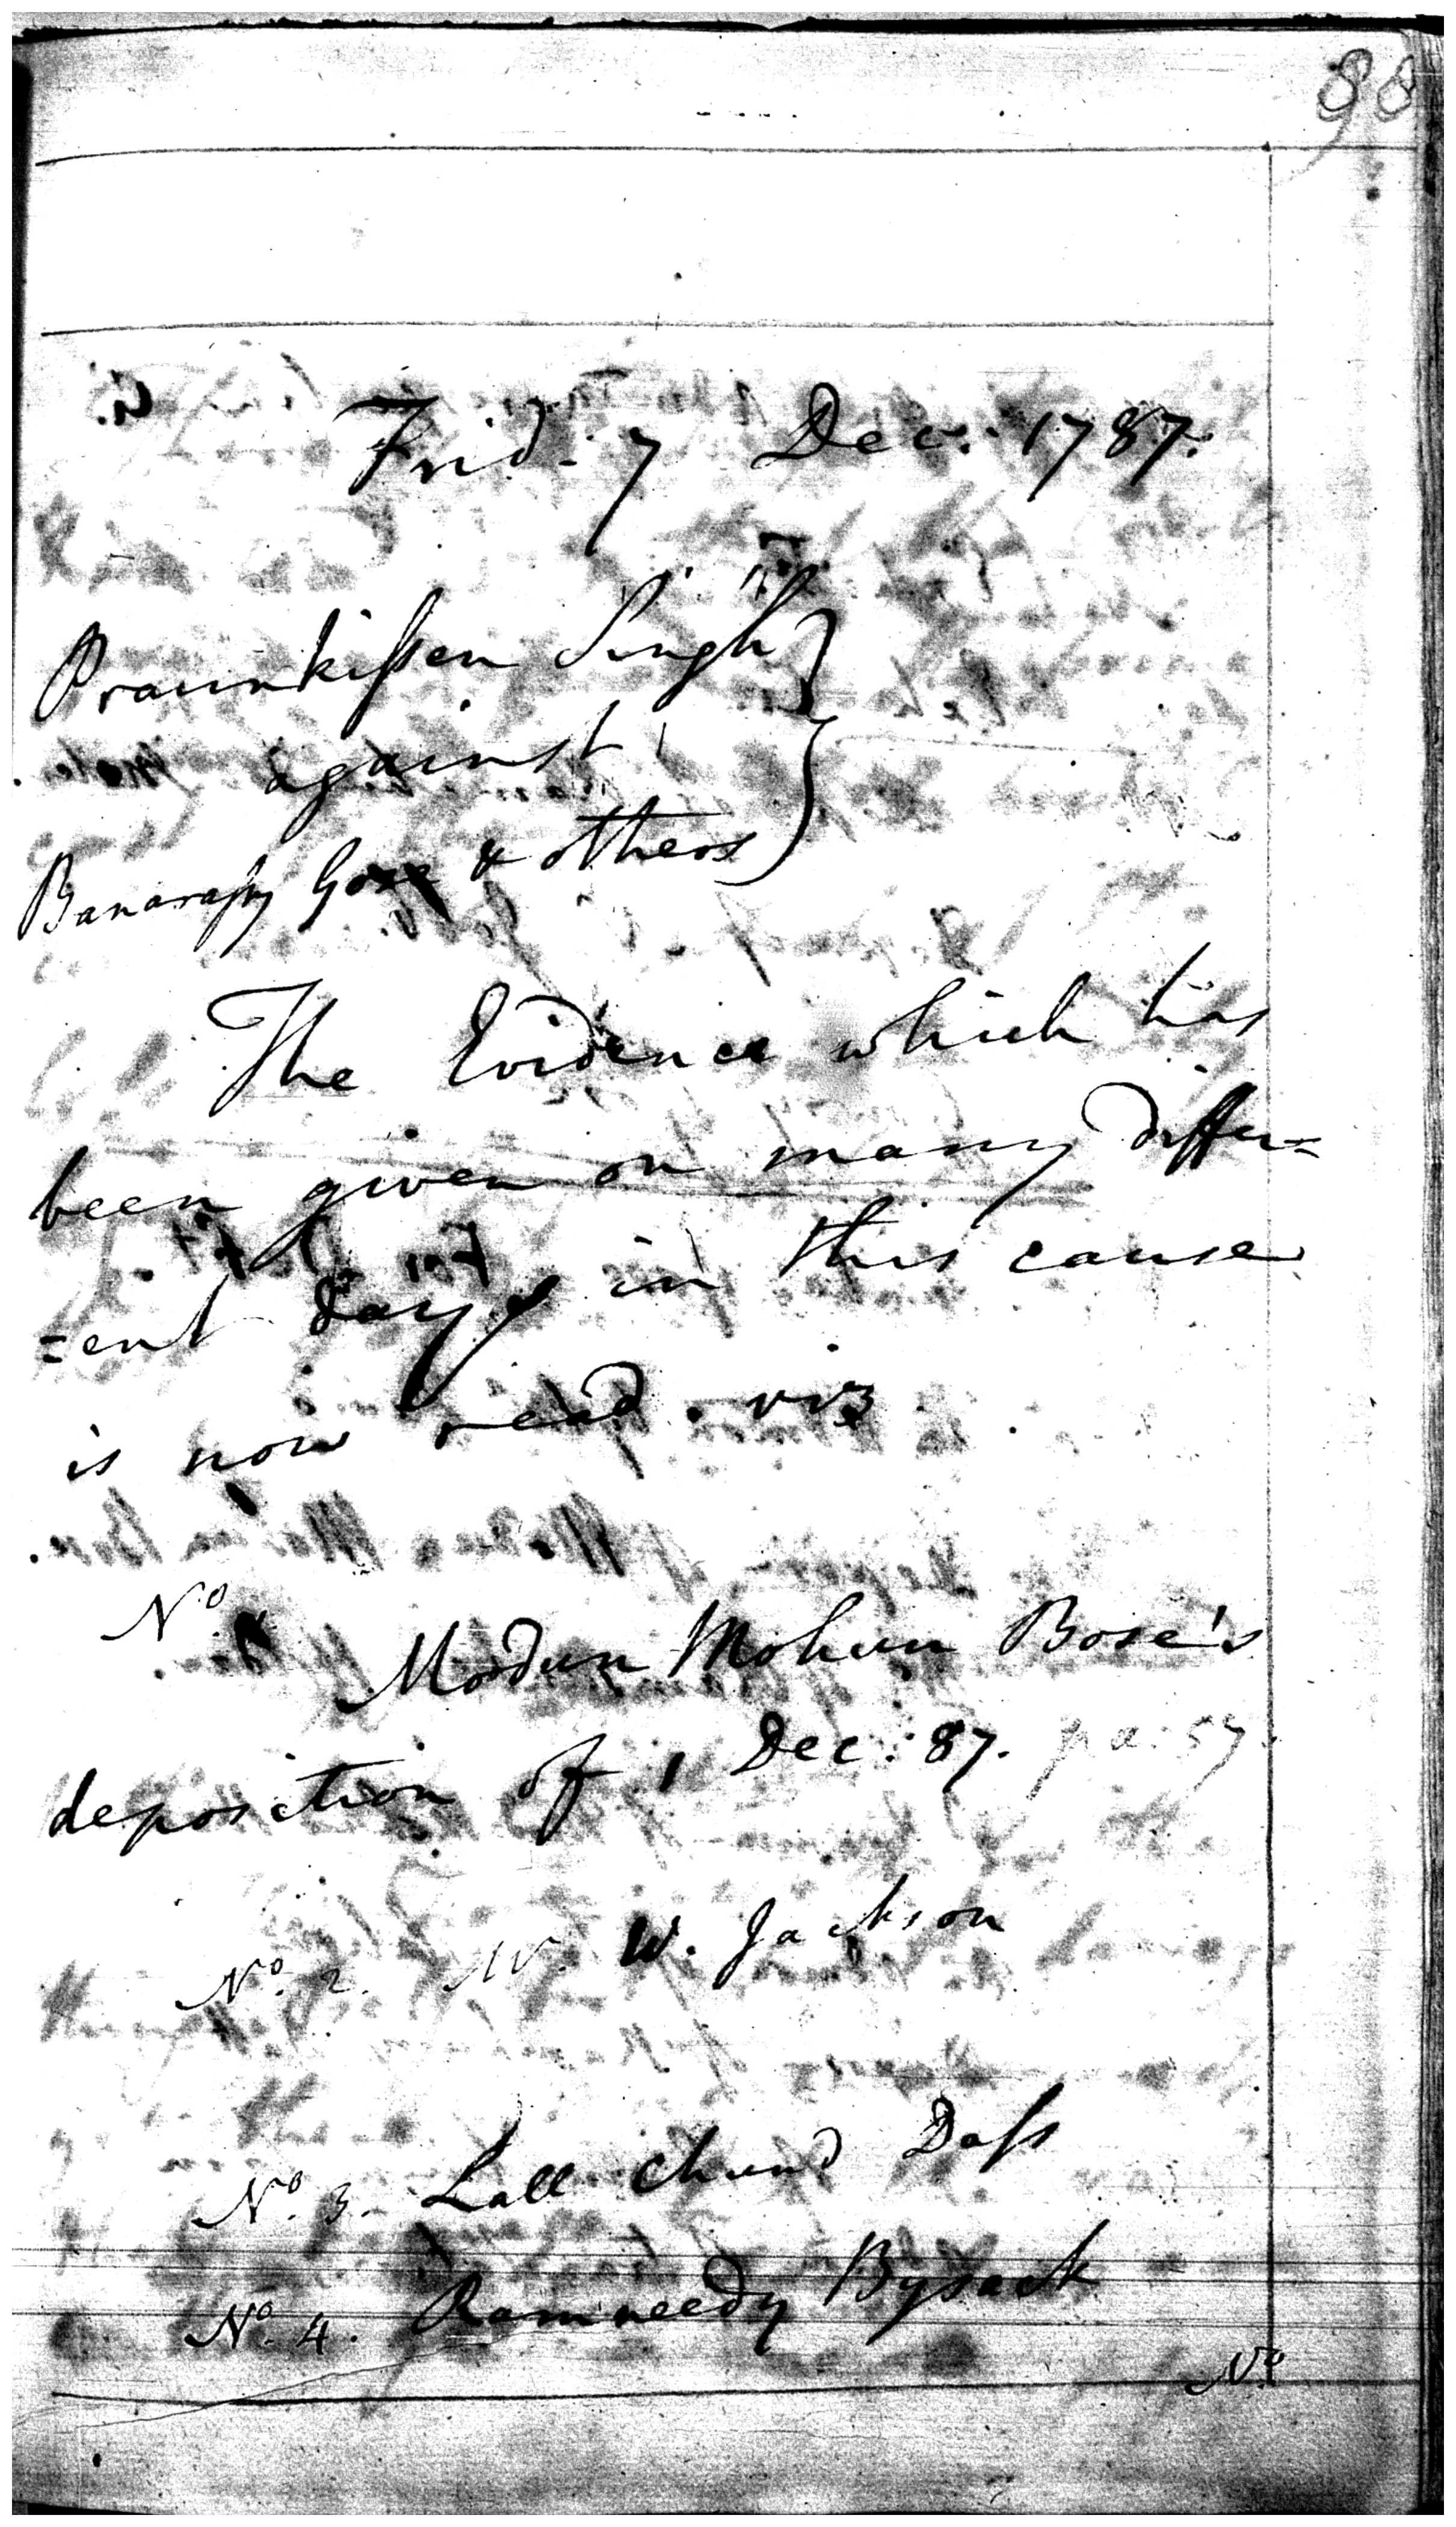 98
Frid. 7 Dec. 1787.
Praunkissen Singh
against
Banarassy Gose & others
The Evidence which has
been given on many differ=
=ent days in this cause
is now read. viz
No. 1
Modun Mohun Bose's
deposition of 1 Dec. 87. pa. 57.
No. 2. Mr. W. Jackson
No. 3. Lall Chund Dass
No. 4. Ramneedy Bysack
No.